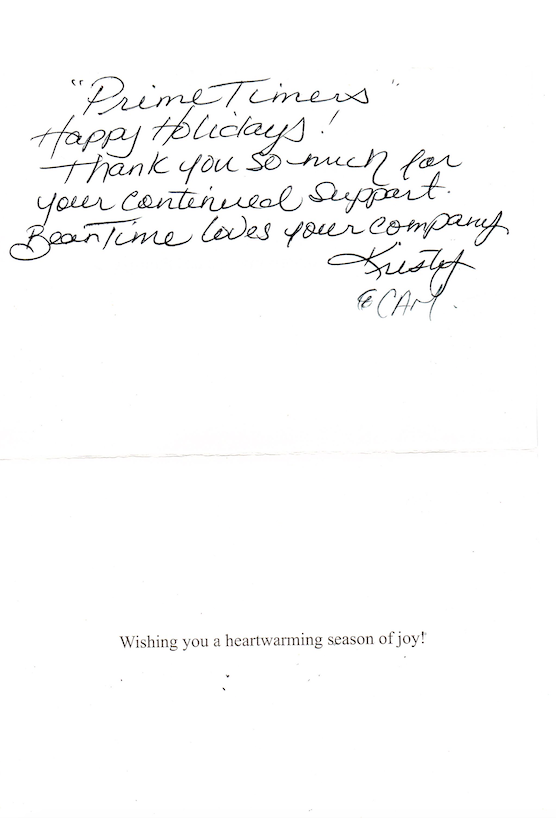 "Prime Timers"
Happy Holidays!
Thank you so much for
your continued support.
BeanTime loves your company
Kristy
& CAM.
Wishing you a heartwarming season of joy!